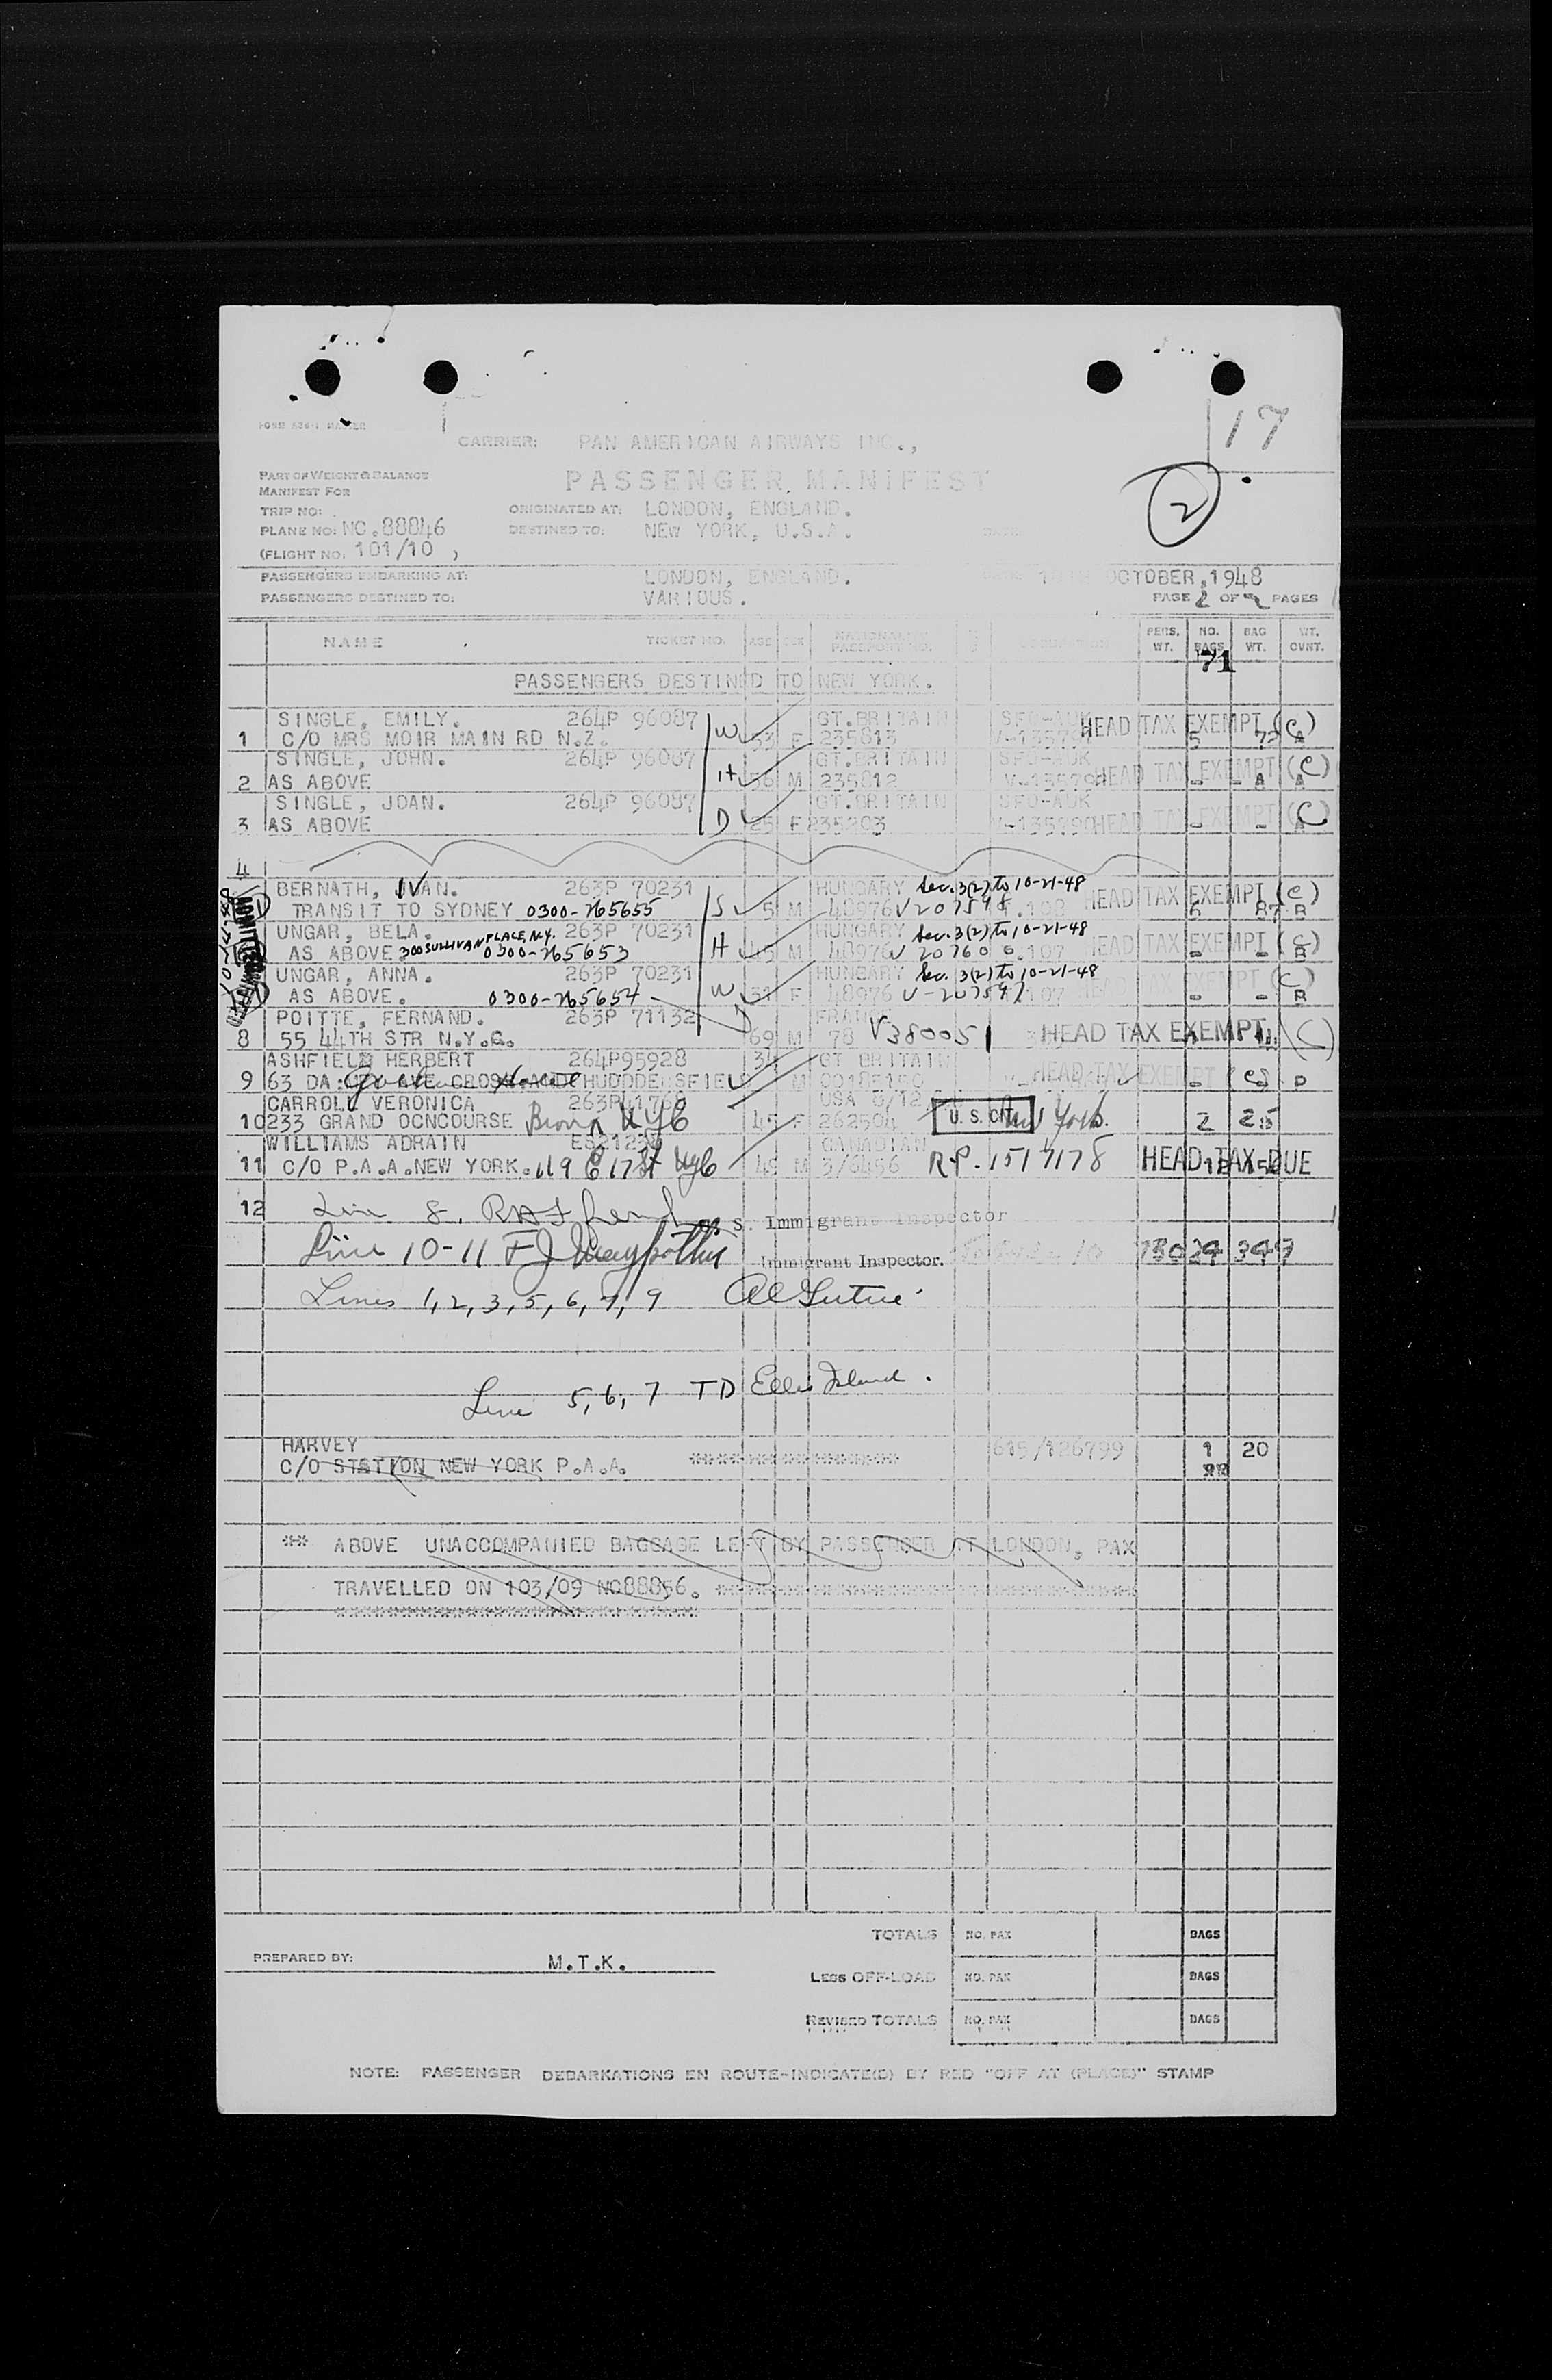 17
CARRIER: PAN AMERICAN AIRWAYS INC.,
PART OF WEIGHT & BALANCE
MANIFEST FOR
PASSENGER MANIFEST
2
TRIP NO:
ORIGINATED AT: LONDON, ENGLAND.
PLANE NO: NC.88846
DESTINED TO: NEW YORK, U.S.A.
(FLIGHT NO: 101/10 )
PASSENGERS EMBARKING AT: LONDON, ENGLAND. OCTOBER, 1948
PASSENGERS DESTINED TO: VARIOUS. PAGE 2 OF 2 PAGES
NAME TICKET NO. AGE SEX NATIONALITY PASSPORT NO. DESTINATION PERS. WT. NO. BAGS BAG WT. WT. CVNT.
71
PASSENGERS DESTINED TO NEW YORK.
SINGLE, EMILY. 264P 96087 W GT.BRITAIN SFO-AUK HEAD TAX EXEMPT (C)
1 C/O MRS MOIR MAIN RD N.Z. 53 F 235813 5 72 A
SINGLE, JOHN. 264P 96087 H GT.BRITAIN SFO-AUK HEAD TAX EXEMPT (C)
2 AS ABOVE 56 M 235812 - - A
SINGLE, JOAN. 264P 96087 D GT.BRITAIN SFO-AUK HEAD TAX EXEMPT (C)
3 AS ABOVE 25 F 235203 - - A
4
BERNATH, IVAN. 263P 70231 S HUNGARY Sec. 3(2) to 10-21-48 HEAD TAX EXEMPT (C)
TRANSIT TO SYDNEY 0300-765655 5 M 48976 V207598 6 87 B
UNGAR, BELA. 263P 70231 H HUNGARY Sec. 3(2) to 10-21-48 HEAD TAX EXEMPT (C)
AS ABOVE 300 SULLIVAN PLACE, N.Y. 0300-765653 45 M 48976 V 207600 - - B
UNGAR, ANNA. 263P 70231 W HUNGARY Sec. 3(2) to 10-21-48 HEAD TAX EXEMPT (C)
AS ABOVE. 0300-765654 31 F 48976 V-207597 - - B
POITTE, FERNAND. 263P 71132 FRANCE
8 55 44TH STR N.Y.C. 69 M 78 V380051 HEAD TAX EXEMPT (C)
ASHFIELD HERBERT 264P95928 34 GT BRITAIN HEAD TAX EXEMPT (C)
9 63 HUDDDERSFIELD M - D
CARROLL VERONICA USA U.S. CIT New York.
10 233 GRAND OCNCOURSE Bronx NYC 45 F 262504 2 25
WILLIAMS ADRAIN CANADIAN
11 C/O P.A.A.NEW YORK. 119 E 17 St NYC 49 M 376456 R.P. 1517178 HEAD TAX DUE
12 Line 8. U. S. Immigrant Inspector
Line 10-11 Immigrant Inspector. 24 349
Lines 1, 2, 3, 5, 6, 7, 9
Line 5, 6, 7 TD Ellis Island.
HARVEY 615/126799 1 20
C/O STATION NEW YORK P.A.A. ********************
** ABOVE UNACCOMPANIED BAGGAGE LEFT BY PASSENGER AT LONDON, PAX
TRAVELLED ON 103/09 NC88856.
TOTALS NO. PAX BAGS
PREPARED BY: M.T.K.
LESS OFF-LOAD NO. PAX BAGS
REVISED TOTALS NO. PAX BAGS
NOTE: PASSENGER DEBARKATIONS EN ROUTE-INDICATE(D) BY RED "OFF AT (PLACE)" STAMP